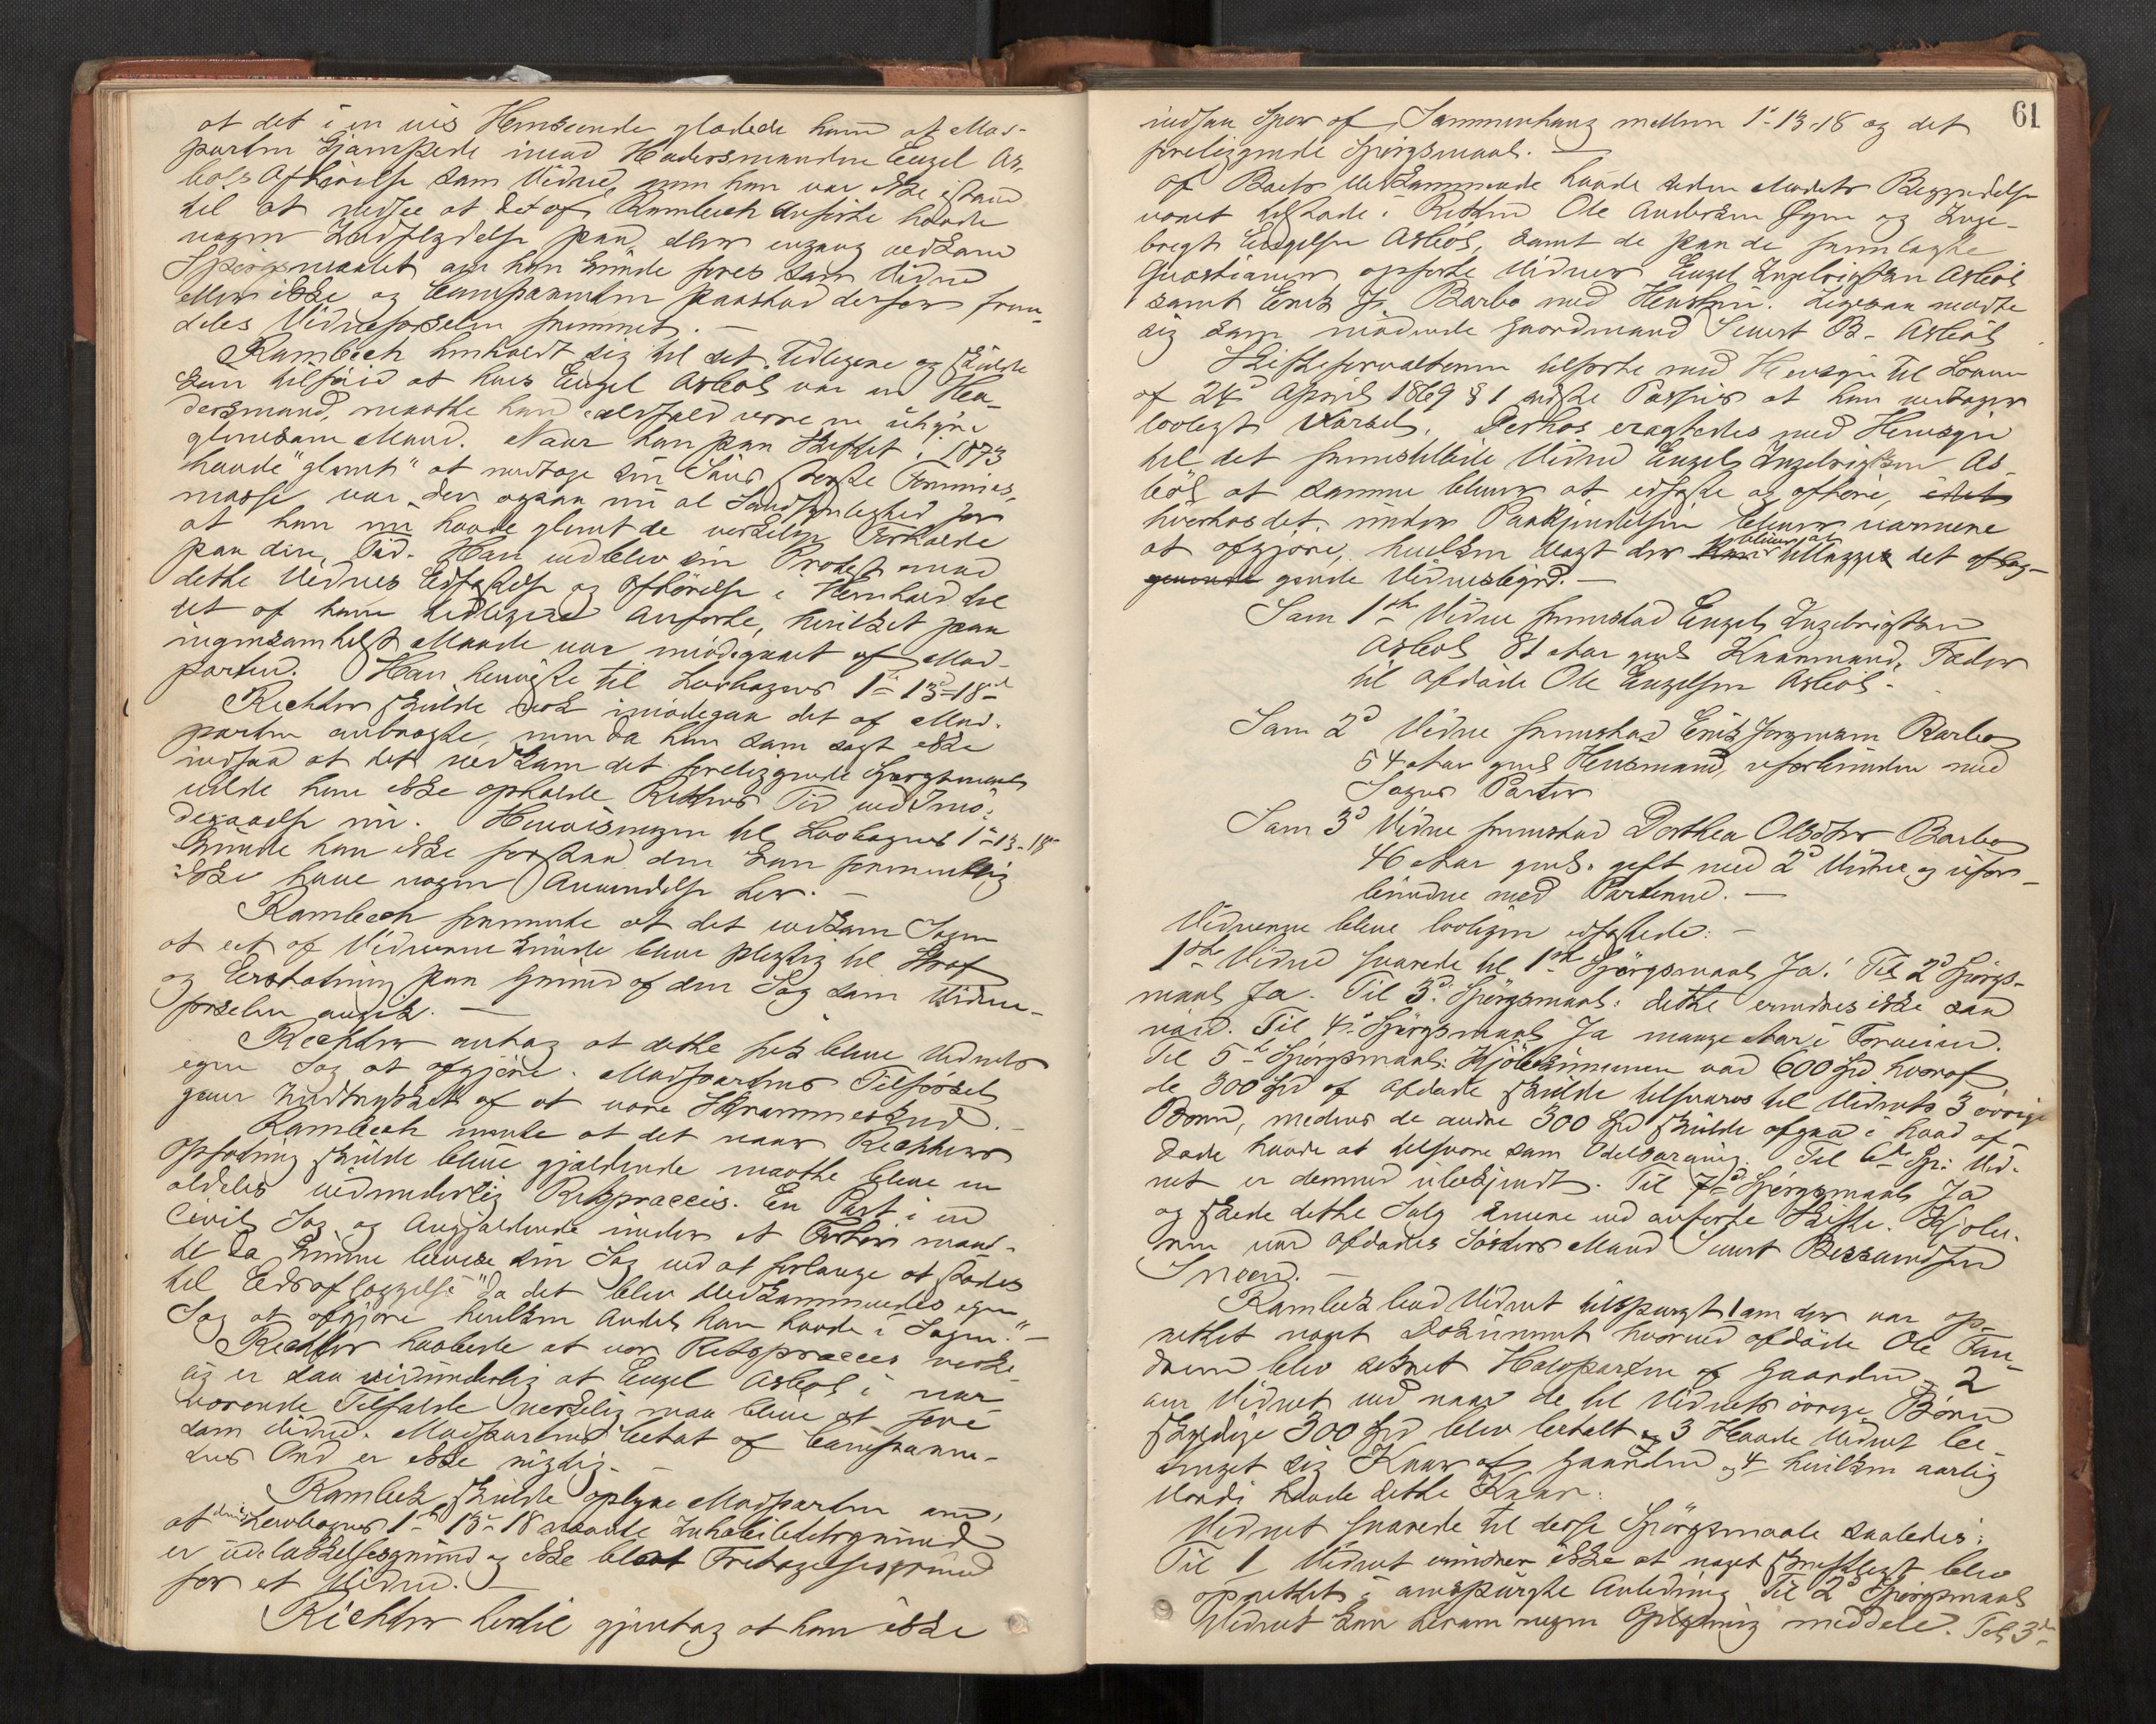 at det i en vis Henseende glædede ham at Mod-
parten kjæmpede imod Hædersmanden Engel As-
bøls Afhörelse som Vidne, men han var ikke istand
til at indsee at det af Rambech anførte havde
nogen Indflydelse paa, eller engang vedkom
Spørgsmaalet om han kunde føres som Vidne
eller ikke og Comparenten paastod derfor frem-
deles Vidneførselen fremmet. —
Rambech henholdt sig til det Tidligere og skulde
kun tilføie at hvis Engel Asbøl var en Hæ-
dersmand, maatte han ialdfald være en uhyre
glemsom Mand. Naar han paa Skiftet i 1873
havde "glemt" at medtage sin Søns første
masse, var der ogsaa nu al Sandsynlighed for
at han nu havde glemt de virkelige Forholde
paa den Tid. Han vedblev sin Protest mod
dette Vidnes Edfæstelse og Afhörelse i Henhold til
det af ham tidligere Anførte, hvilket paa
ingensomhelst Maade var imödegaaet af Mod-
parten. Han henviste til Lovbogens 1-13-18
Rechter skulde nok imödegaa det af Mod-
parten anbragte, men da han som sagt ikke
indsaa at det vedkom det foreliggende Spørgsmaal
vilde han ikke opholde Rettens Tid ved Imö-
degaaelse nu. Henvisningen til Lovbogens 1-13-18
kunde han ikke forstaa den kan formentlig
ikke have nogen Anvendelse her. —
Rambech formente at det vedkom Sagen
at eet af Vidnerne kunde blive pligtig til Straf
og Erstatning paa Grund af den Sag som Vidne-
førselen angik. —
Rechter antog at dette fik blive Vidnets
egen Sag at afgjöre. Modpartens Tilförsel
gav Indtrykket af at være Skræmmeskud. —
Rambech mente at det naar Rechters
Opfatning skulde blive gjældende maatte blive en
aldeles vidunderlig Retspraxis. En Part i en
Civil Sag og Angjældende under et Forhör maat-
te da kunne bevise sin Sag ved at forlange at stedes
til Edsaflæggelse "da det blev Vedkommendes egen
Sag at afgjöre hvilken Andel han havde i Sagen." —
Rechter haabede at vor Retspraxis virke-
lig er saa vidunderlig at Engel Asbøl i nær-
værende Tilfælde virkelig maa blive at føre
som Vidne. Modpartens Citat af Comparen-
tens Ord er ikke rigtig. —
Rambech skulde oplyse Modparten om,
at den i Lovbogens 1-13-18 nævnte Inhabilitetsgrund
er Udelukkelsesgrund og ikke blot Fritagelsesgrund
for et Vidne. —
Richter hertil gjentog at han ikke
61
indsaa Spor af Sammenhæng mellem 1-13-18 og det
foreliggende Spörgsmaal. —
Af Boets Vedkommende havde siden Mødets Begyndelse
været tilstede i Retten Ole Andersen Øyen og Inge-
bregt Engelsen Asbøl, samt de paa de fremlagte
Quæstioner opførte Vidner Engel Ingebrigtsen Asbøl
samt Erik J. Barbo med Hustru. Ligesaa mødte
sig som mødende Gaardmand Sivert B. Asbøl
Skifteforvalteren tilførte med Hensyn til Loven
af 24de April 1869 § 1 sidste Passus at han vedtager
lovligt Varsel. Derhos eragtedes med Hensyn
til det fremstillede Vidne Engel Ingebrigtsen As-
bøl at samme bliver at edfæste og afhöre,
hvorhos det under Paakjendelsen bliver nærmere
at afgjöre, hvilken Vægt der bliver at tillægge det aflæg-
gende Vidnesbyrd. —
Som 1ste Vidne fremstod Engel Ingebrigtsen
Asbøl 81 Aar gml Kaarmand, Fader
til afdöde Ole Engelsen Asbøl. —
Som 2d Vidne fremstod Erik Jörgensen Barbo
54 Aar gml Husmand, uforbunden med
Sagens Parter
Som 3d Vidne fremstod Dorthea Olsdtr Barbo
46 Aar gml. gift med 2d Vidne, og ufor-
bunden med Parterne. —
Vidnerne bleve lovligen edfæstede: —
1ste Vidne svarede til 1ste Spörgsmaal Ja! Til 2d Spörgs-
maal Ja. Til 3d Spörgsmaal: dette erindres ikke saa
nöie. Til 4de Spörgsmaal Ja mange Aar i Forveien.
Til 5te Spörgsmaal: Kjöbesummen var 600 Spd hvoraf
de 300 Spd af Afdöde skulde tilsvares til Vidnets 3 övrige
Børn, medens de andre 300 Spd skulde afgaa i hvad af-
döde havde at tilsvare som Odelsarving. Til 6te Sp: Vid-
net er dermed ubekjendt. Til 7de Spörgsmaal Ja
og skede dette Salg senere end anførte Skifte. Kjöbe-
ren var Afdødes Søsters Mand Sivert Bersvendsen
Sneen. —
Rambech lod Vidnet tilspurgt 1 om der var op-
rettet noget Dokument hvorved afdöde Ole
blev sikret Halvparten af Gaarden — 2
om Vidnet ved naar de til Vidnets övrige Børn
skyldige 300 Spd blev betalt og 3 Havde Vidnet be-
tinget sig Kaar af Gaarden og 4 hvilken aarlig
Værdi havde dette Kaar.
Vidnet svarede til disse Spörgsmaale saaledes:
Til 1 Vidnet erindrer ikke at noget skriftligt blev
oprettet i omspurgte Anledning Til 2d Spørgsmaal
Vidnet kan herom ingen Oplysning meddele. Til 3de